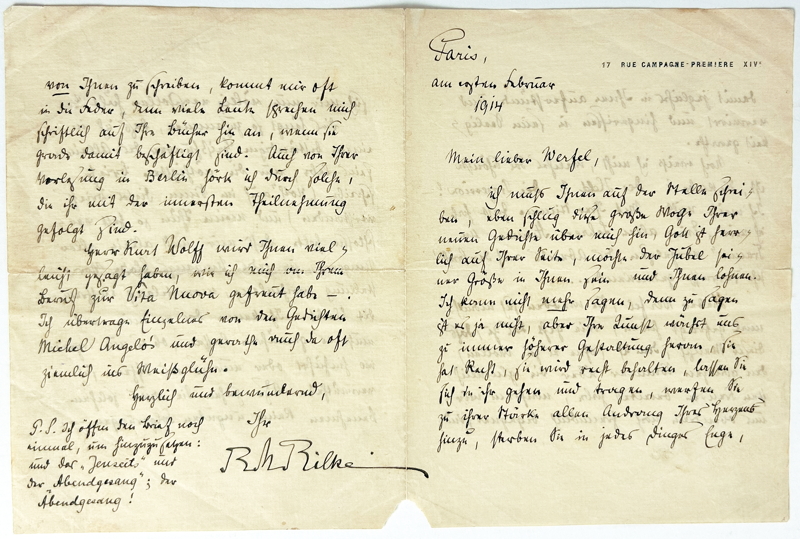 17 RUE CAMPAGNE-PREMIERE XIVᵉ
Paris,
am ersten Februar
1914
Mein lieber Werfel,
ich muß Ihnen auf der Stelle schrei-
ben, eben schlug diese große Woge Ihrer
neuen Gedichte über mich hin, Gott ist herr-
lich auf Ihrer Seite, möchte der Jubel sei-
ner Größe in Ihnen sein und Ihnen lohnen.
Ich kann nicht mehr sagen, denn zu sagen
ist es ja nicht, aber Ihre Kunst wächst uns
zu immer höherer Gestaltung heran, sie
hat Recht, sie wird recht behalten, lassen Sie
sich in ihr gehen und tragen, werfen Sie
zu ihrer Stärke allen Andrang Ihres Herzens
hinzu, sterben Sie in jedes Dinges Enge,
von Ihnen zu schreiben, kommt mir oft
in die Feder, denn viele Leute sprechen mich
schriftlich auf Ihre Bücher hin an, wenn sie
gerade damit beschäftigt sind. Auch von Ihrer
Vorlesung in Berlin hört ich durch solche,
die ihr mit der innersten Theilnehmung
gefolgt sind.
Herr Kurt Wolff wird Ihnen viel-
leicht gesagt haben, wie ich mich an Ihrem
Bericht zur Vita Nuova gefreut habe —.
Ich übertrage Einzelnes von den Gedichten
Michel Angelos und gerathe auch da oft
ziemlich ins Weißglühn.
Herzlich und bewundernd,
Ihr
RMRilke
P.S. Ich öffn den Brief noch
einmal, um hinzuzusetzen:
und das „Jenseits" und
der Abendgesang"; der
Abendgesang!